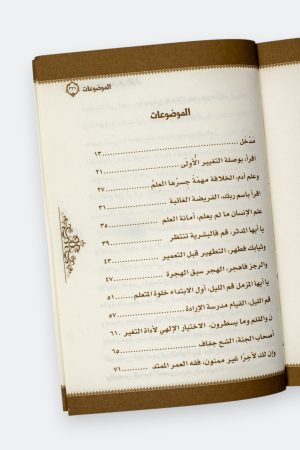 الموضوعات
الموضوعات
مَدْخَل ............ ١٣
اقرأ، بوصلة التغيير الأُولَى ............ ٢١
وعلم آدم، الخلافة مهمَةٌ جسرُها العلمُ ............ ٢٧
اقرأ باسم ربك، الفريضة الغائبة ............ ٣١
علم الإنسان ما لم يعلم، أمانة العلم ............ ٣٥
يا أيها المدثر، قم فالبشرية تنتظر ............ ٣٩
وثيابك فطهر، التطهير قبل التعمير ............ ٤٣
والرجز فاهجر، الهجر سبق الهجرة ............ ٤٧
يا أيها المزمل قم الليل، أول الابتداء خلوة المتعلم ............ ٥١
قم الليل، القيام مدرسة الإرادة ............ ٥٧
ن والقلم وما يسطرون، الاختيار الإلهي لأداة التغير ............ ٦١
أصحاب الجنة، الشح جفاف ............ ٦٥
وإن لك لأجرًا غير ممنون، فقه العمر الممتد ............ ٧١